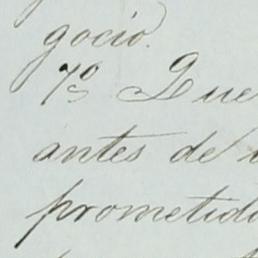 gocio.
7º Que
antes de
prometid